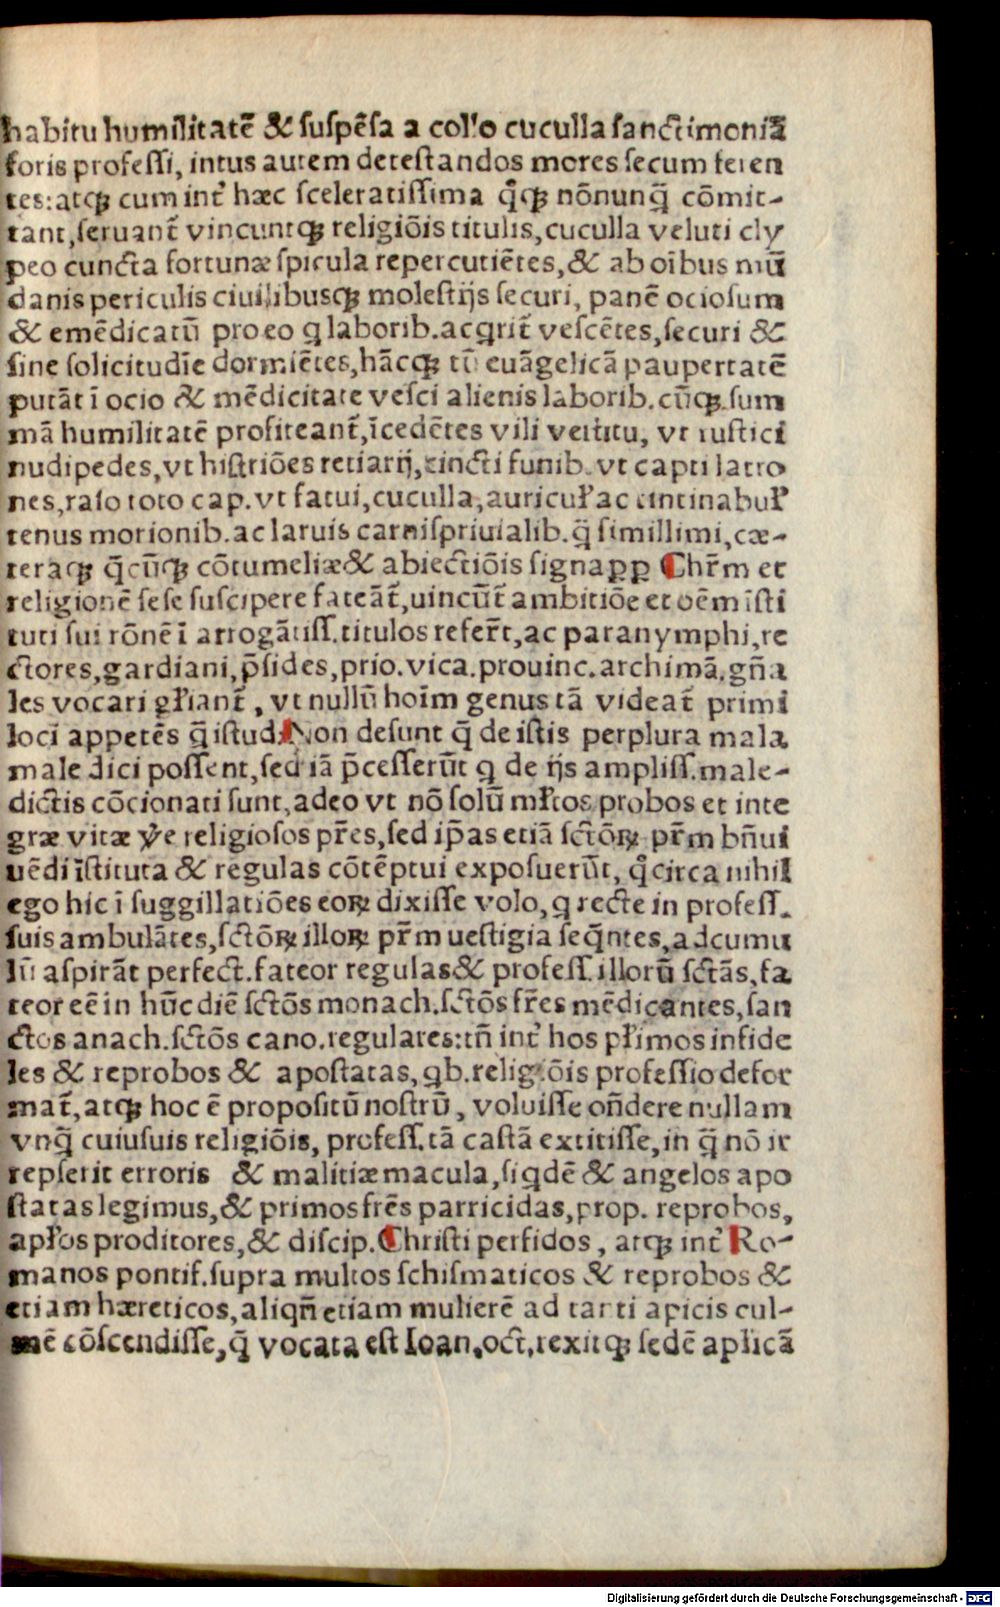 habitu humilitatē & suspēsa a collo cuculla sanctimoniā
foris professi, intus autem detestandos mores secum feren
tes: atqꝫ cum int̉ hæc sceleratissima q̊qꝫ nōnunq̄ cōmit-
tant, seruant̄ vincuntqꝫ religiōis titulis, cuculla veluti cly
peo cuncta fortunæ spicula repercutiētes, & ab oibus mū
danis periculis ciuilibusqꝫ molestijs securi, panē ociosum
& emēdicatū pro eo q laborib. acqrit̄ vescētes, securi &
sine solicitudīe dormiētes, hācqꝫ tū euāgelicā paupertatē
putāt ī ocio & mēdicitate vesci alienis laborib. cūqꝫ sum
mā humilitatē profiteant̄, īcedētes vili vestitu, vt rustici
nudipedes, vt histriōes retiarij, cincti funib. vt capti latro
nes, raso toto cap. vt fatui, cuculla, auricul̄ ac tintinabul̄
tenus morionib. ac laruis carnispriuialib. q̄ simillimi, cæ-
teraqꝫ q̄cūqꝫ cōtumeliæ & abiectiōis signa ꝓꝑ Chr̄m et
religionē sese suscipere fateāt̄, uincūt̄ ambitiōe et oēm īsti
tuti sui rōnē ī arrogātiss. titulos refer̄t, ac paranymphi, re
ctores, gardiani, p̄sides, prio. vica. prouinc. archimā. gn̄a
les vocari gl̄iant̄, vt nullū hoīm genus tā videat̄ primi
loci appetēs q̄ istud. Non desunt q̄ de istis perplura mala
male dici possent, sed iā p̄cesserūt q de ijs ampliss. male-
dictis cōcionati sunt, adeo vt nō solū ml̄tos probos et inte
græ vitæ v̄e religiosos pr̄es, sed ip̄as etiā sctōꝝ pr̄m bn̄ui
uēdi īstituta & regulas cōtēptui exposuerūt, q̊circa nihil
ego hic ī suggillatiōes eoꝝ dixisse volo, q recte in profess.
suis ambulātes, sctōꝝ illoꝝ pr̄m uestigia seq̄ntes, ad cumu
lū aspirāt perfect. fateor regulas & profess. illorū sctās, fa
teor eē in hūc diē sctōs monach. sctōs fr̄es mēdicantes, san
ctos anach. sctōs cano. regulares: tn̄ int̉ hos pl̄imos infide
les & reprobos & apostatas, qb. religiōis professio defor
mat̄, atqꝫ hoc ē propositū nostrū, voluisse on̄dere nullam
vnq̄ cuiusuis religiōis, profess. tā castā extitisse, in q̄ nō ir
repserit erroris & malitiæ macula, siqdē & angelos apo
statas legimus, & primos frēs parricidas, prop. reprobos,
apl̄os proditores, & discip. Christi perfidos, atqꝫ int̉ Ro-
manos pontif. supra multos schismaticos & reprobos &
etiam hæreticos, aliqn̄ etiam mulierē ad tanti apicis cul-
mē cōscendisse, q̄ vocata est Ioan. oct. rexitqꝫ sedē aplicā
Digitalisierung gefördert durch die Deutsche Forschungsgemeinschaft - DFG